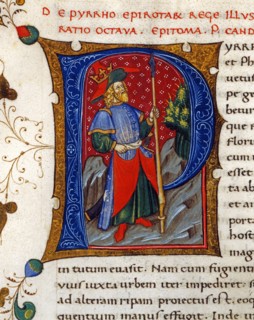 DE PYRRHO EPIROTA REGE ILLVS
RATIO OCTAVA. EPITOMA. P. CAND
YRRH
et Ph
vetus
pe gr
betur
que r
Floru
cum u
esset
ta ab
et ar
porta
host
in tutum euasit. Nam cum fugient
uius iuxta urbem iter impediret: s
ad alteram ripam protectus est. eoq
quentium manus effugit. Inde in